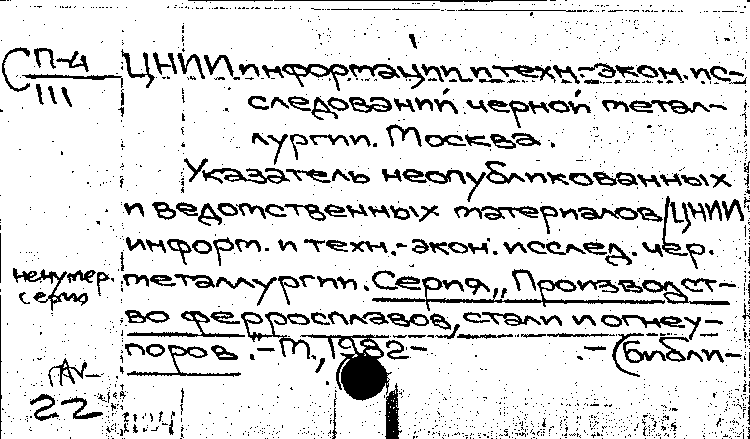 СП-4
III
ЦНИИ информации и техн.-экон. ис-
следований черной метал-
лургии. Москва.
Указатель неопубликованных
и ведомственных материалов/ЦНИИ
информ. и техн.-экон. исслед. чер.
металлургии. Серия „Производст-
во ферросплавов, стали и огнеу-
поров". - М., 1982-      .-(Библи-
ненумер.
серия
22